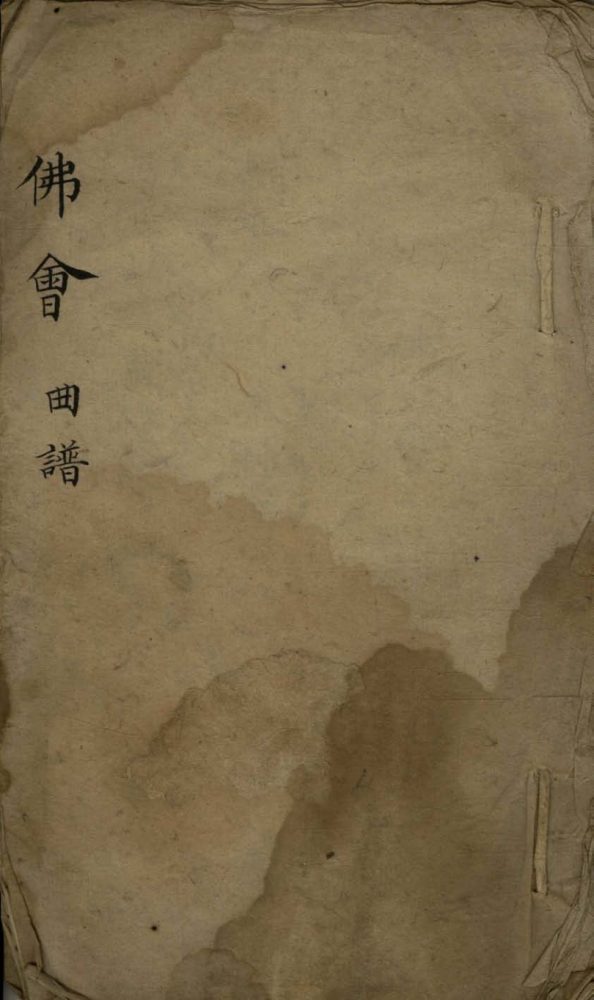 佛會曲譜